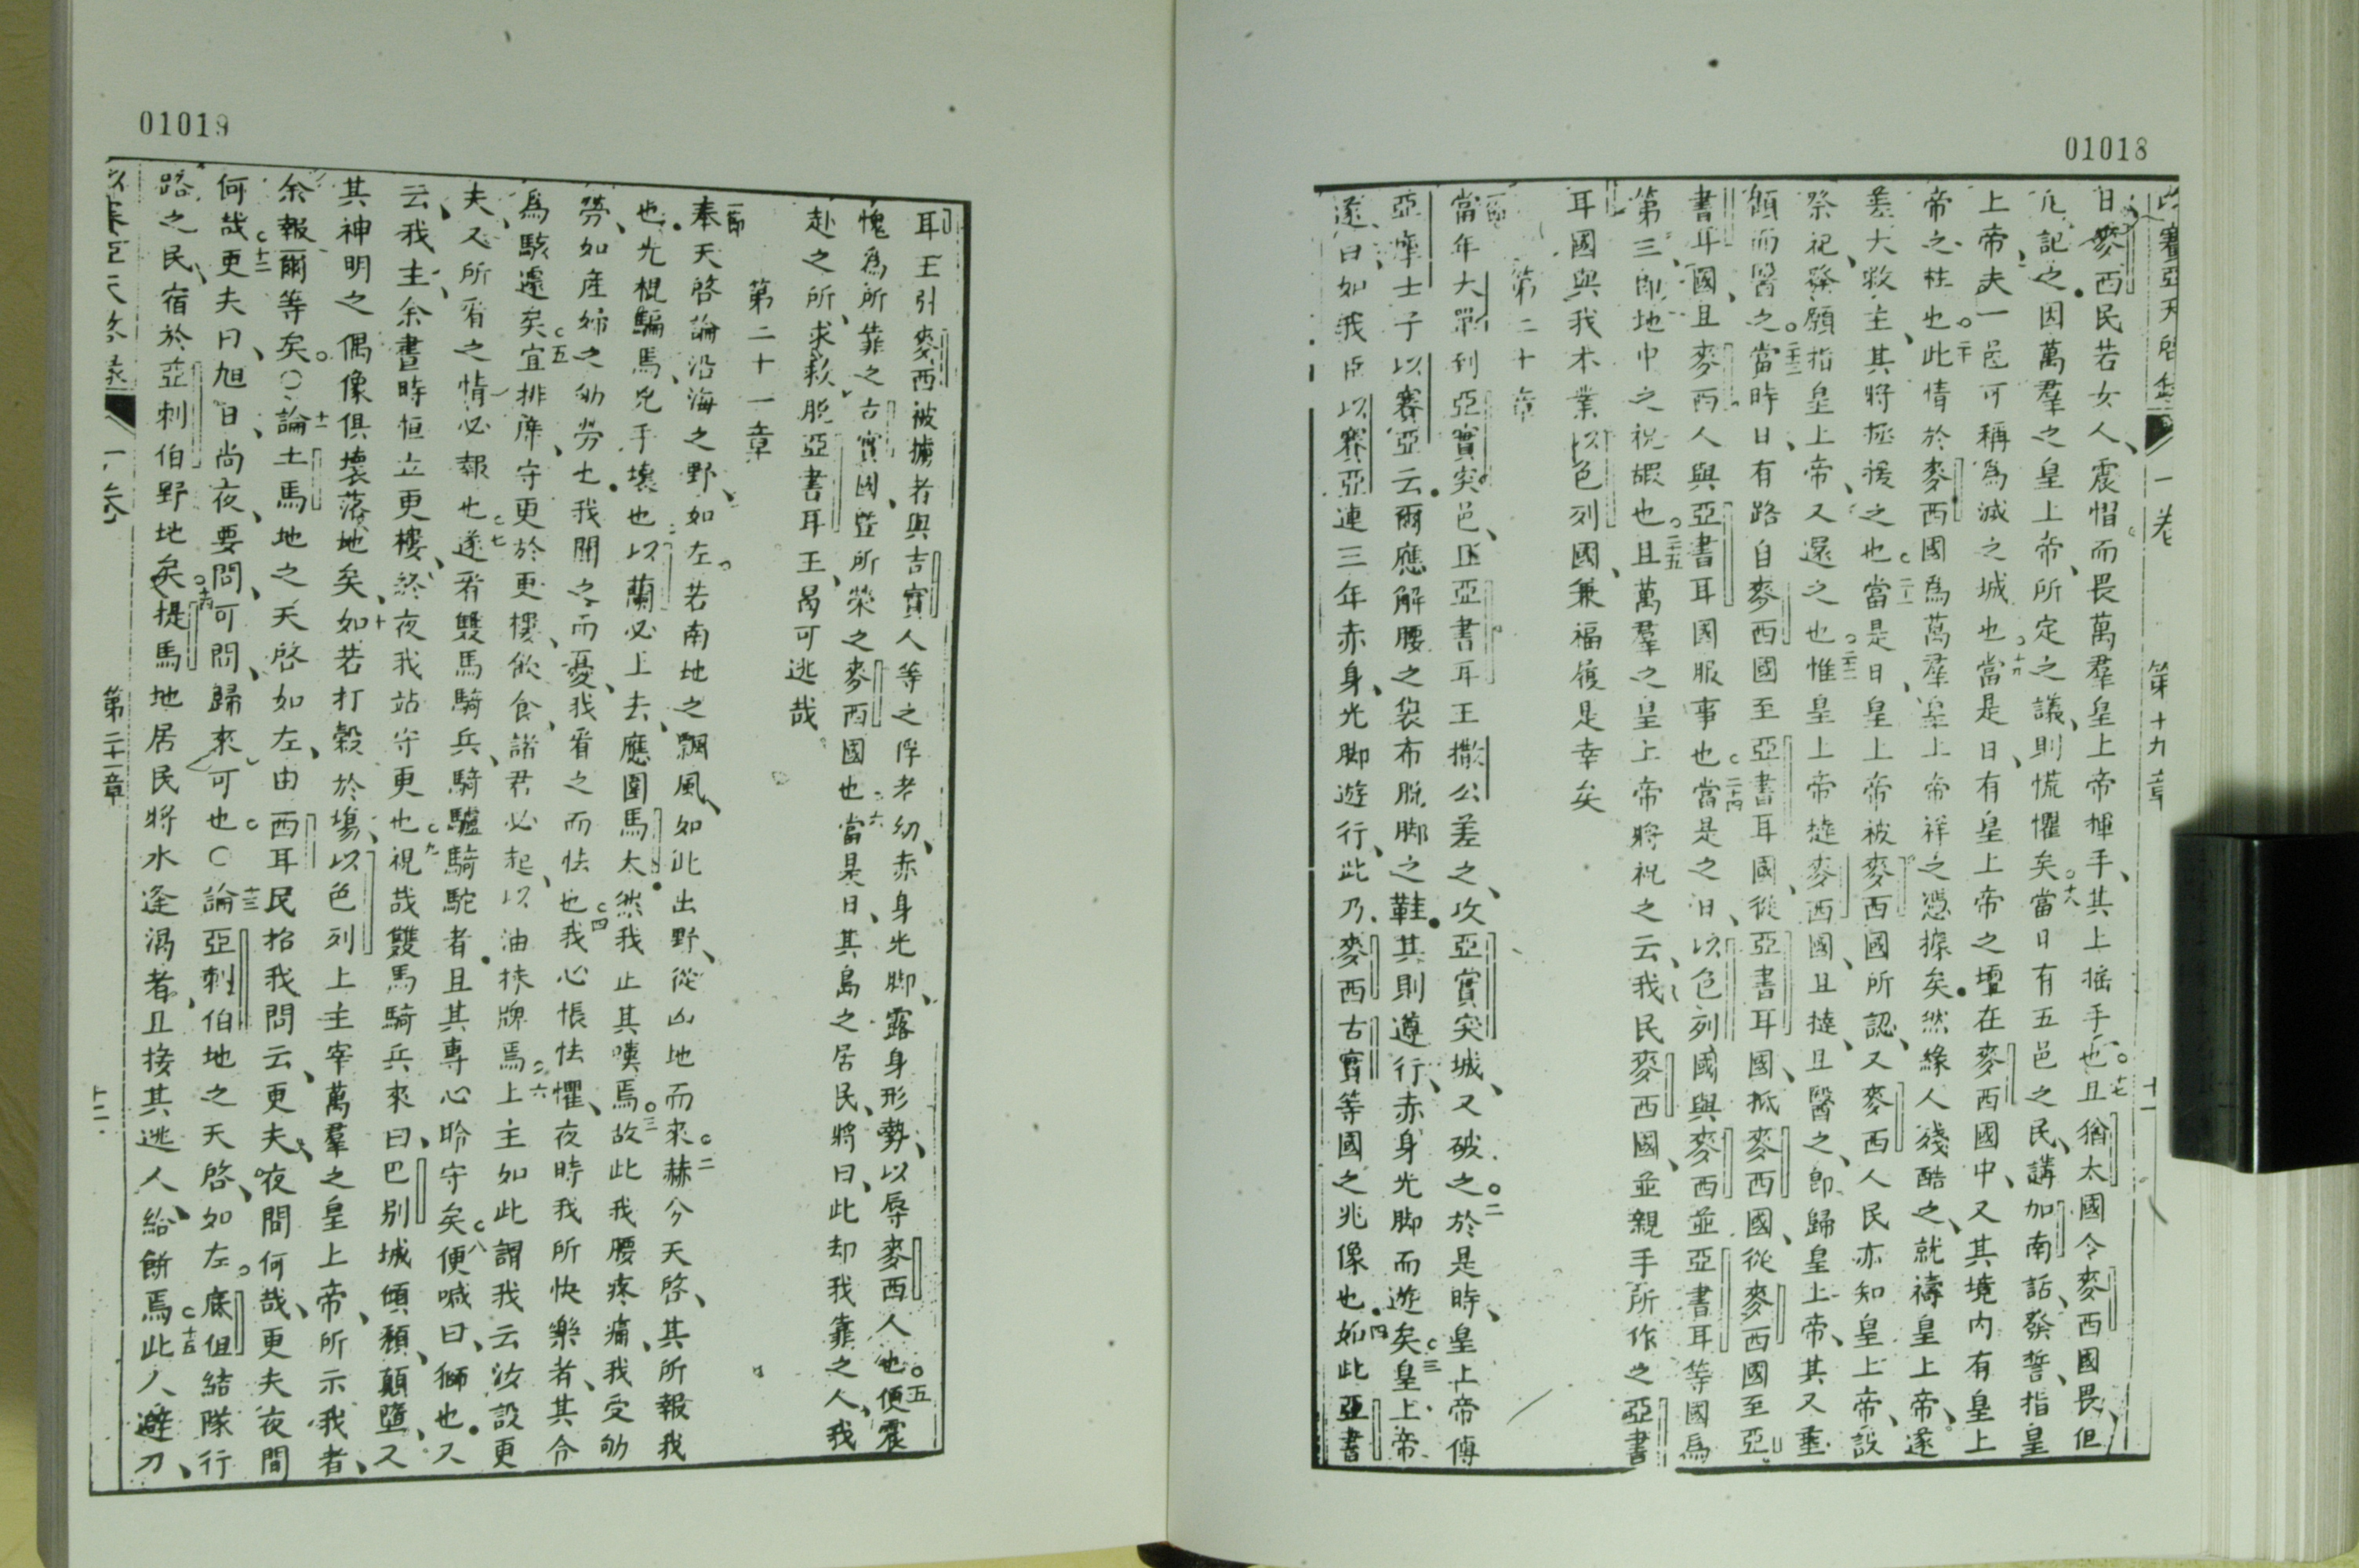 01018
以賽亞天啓錄 一卷 第十九章 十一
日麥西民若女人震惶而畏萬羣皇上帝揮手其上搖手也十七且猶太國令麥西國畏但
凡記之因萬羣之皇上帝所定之議則慌懼矣十八當日有五邑之民講加南話發誓指皇
上帝夫一邑可稱爲滅之城也十九當是日有皇上帝之壇在麥西國中又其境內有皇上
帝之柱也二十此情於麥西國爲萬羣皇上帝祥之憑據矣然緣人殘酷之就禱皇上帝遂
差大救主其將拯援之也二一當是日皇上帝被麥西國所認又麥西人民亦知皇上帝設
祭祀發願指皇上帝又還之也二二惟皇上帝撻麥西國且撻且醫之卽歸皇上帝其又垂
顧而醫之二三當時日有路自麥西國至亞書耳國從亞書耳國抵麥西國從麥西國至亞
書耳國且麥西人與亞書耳國服事也二十四當是之日以色列國與麥西並亞書耳等國爲
第三卽地中之祝嘏也二十五且萬羣之皇上帝將祝之云我民麥西國並親手所作之亞書
耳國與我木業以色列國兼福履是幸矣
第二十章
一節當年大單到亞實突邑亞書耳王撒公差之攻亞實突城又破之二於是時皇上帝傳
亞摩士子以賽亞云爾應解腰之袋布脫脚之鞋其則遵行赤身光脚而遊矣三皇上帝
遂曰如我臣以賽亞連三年赤身光脚遊行此乃麥西古實等國之兆像也四如此亞書
01019
耳王引麥西被擄者與古實人等之俘老幼赤身光脚露身形勢以辱麥西人也五便震
愧爲所靠之古實國曁所榮之麥西國也六當是日其島之居民將曰此却我靠之人我
赴之所求救脫亞書耳王曷可逃哉
第二十一章
一節奉天啓論沿海之野如左若南地之飄風如此出野從凶地而來二赫今天啓其所報我
也光棍騙馬兇手壞也以蘭必上去應圍馬太然我止其嘆焉三故此我腰疼痛我受劬
勞如產婦之劬勞也我聞之而憂我看之而怯也四我心悵怯懼夜時我所快樂者其令
爲駭遽矣五宜排席守更於更樓飲食諸君必起以油抹牌焉六上主如此謂我云汝設更
夫又所看之情必報也七遂看雙馬騎兵騎驢騎駝者且其專心聆守矣八便喊曰獅也又
云我主余晝時恒立更樓終夜我站守更也九視哉雙馬騎兵來曰巴別城傾頹顛墮又
其神明之偶像俱壞落地矣十如若打穀於塲以色列上主宰萬羣之皇上帝所示我者
余報爾等矣〇十一論土馬地之天啓如左由西耳民招我問云更夫夜間何哉更夫夜間
何哉十二更夫曰旭日尚夜要問可問歸來可也〇十三論亞剌伯地之天啓如左底但結隊行
路之民宿於亞刺伯野地矣十四提馬地居民將水逢渴者且接其逃人給餅焉十五此人避刀
以賽亞天啓錄 一卷 第二十一章 十二